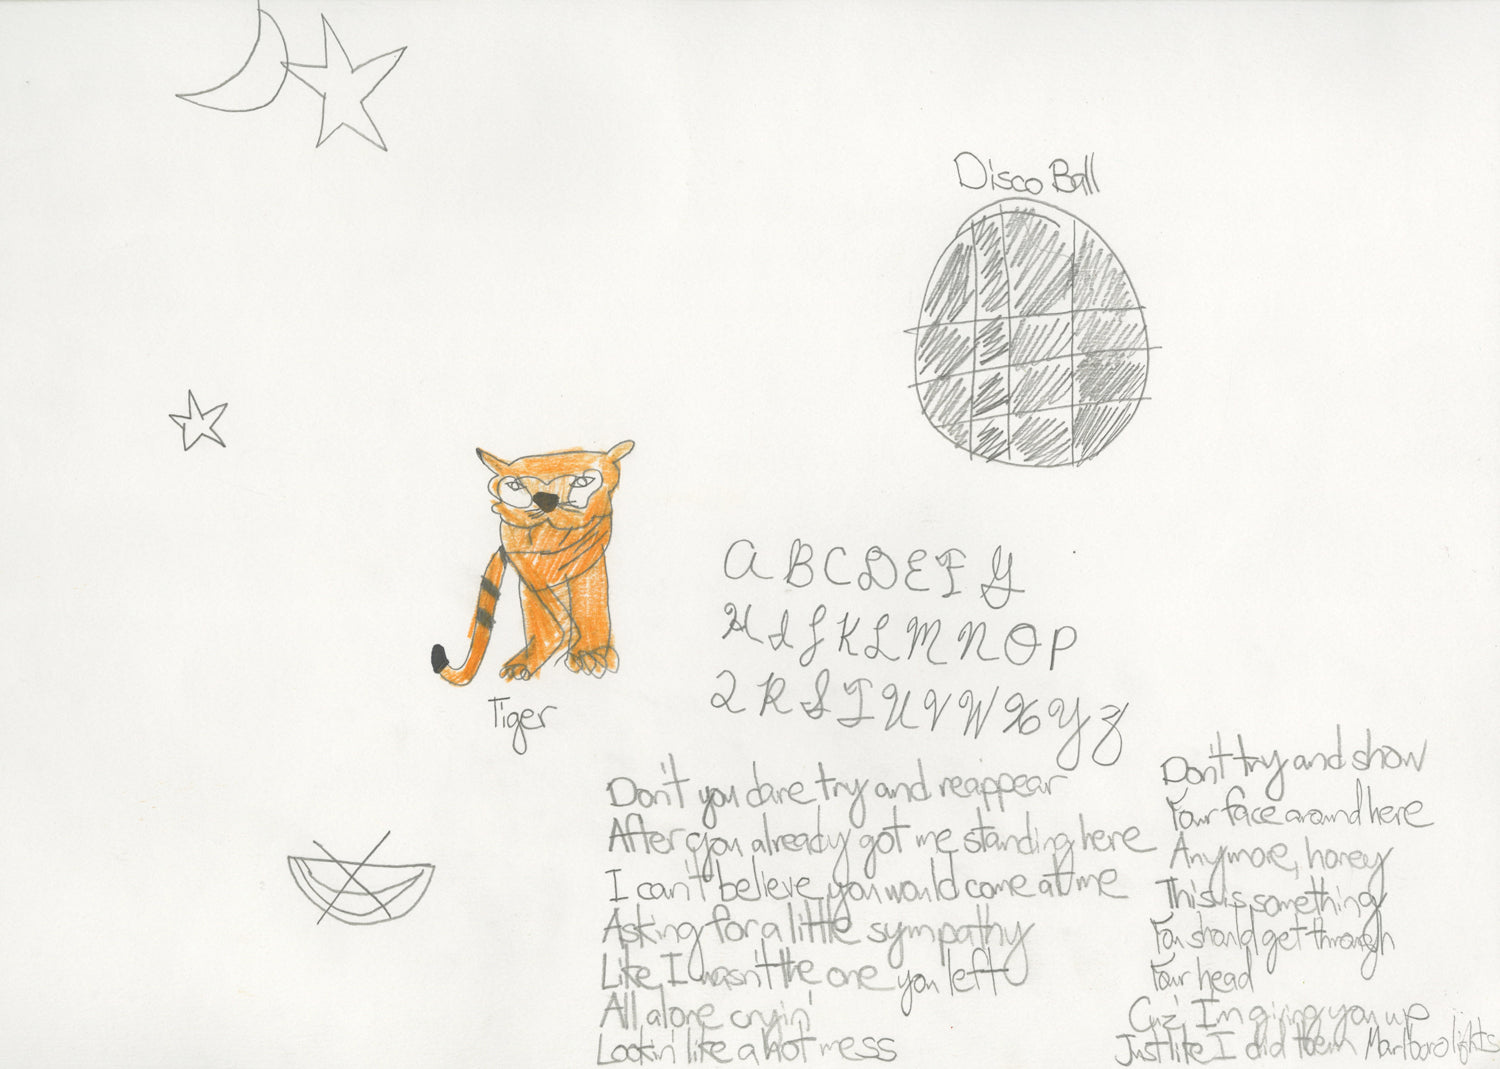 Disco Ball
Tiger
A B C D E F G
H I J K L M N O P
Q R S T U V W X Y Z
Don't you dare try and reappear
After you already got me standing here
I can't believe you would come at me
Asking for a little sympathy
Like I wasn't the one you left
All alone cryin'
Lookin' like a hot mess
Don't try and show
Your face around here
Anymore, honey
This is something
You should get through
Your head
Cuz' I'm giving you up
Just like I did them Marlboro lights